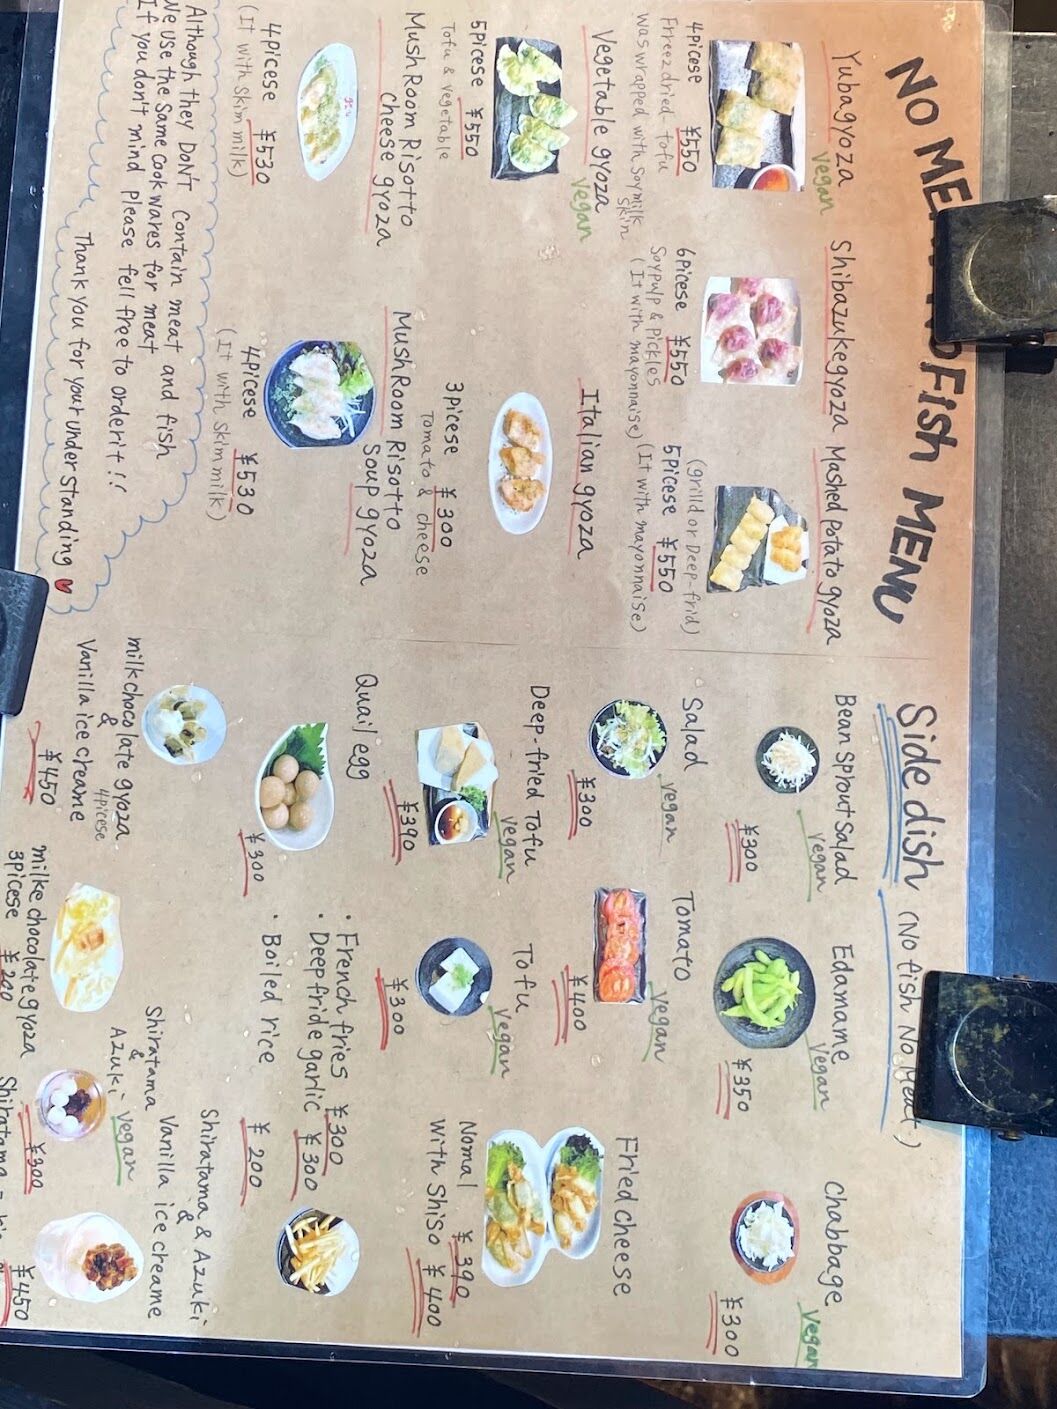 NO MEAT NO Fish MENU
Yubagyoza
vegan
4picese ¥550
Frreezdried-tofu
was wrapped with Soymilk
skin
Shibazukegyoza
6picese ¥550
Soypulp & Pickles
(It with mayonnaise)
Mashed Potato gyoza
(grilld or Deep-frid)
5picese ¥550
(It with mayonnaise)
Vegetable gyoza
vegan
5picese ¥550
Tofu & vegetable
Italian gyoza
3picese ¥300
Tomato & cheese
MushRoom Risotto
cheese gyoza
4picese ¥530
(It with skim milk)
MushRoom Risotto
Soup gyoza
4picese ¥530
(It with skim milk)
Although they DON'T contain meat and fish
We use the same cook wares for meat
If you don't mind please fell free to orderit!!
Thank you for your under standing
Side dish (No fish No Meat)
Bean sprout Salad
vegan
¥300
Edamame
vegan
¥350
Chabbage
vegan
¥300
Salad
vegan
¥300
Tomato
vegan
¥400
Fried cheese
Nomal ¥390
with Shiso ¥400
Deep-fried Tofu
vegan
¥390
Tofu
vegan
¥300
Quail egg
¥300
・French fries ¥300
・Deepfride garlic ¥300
・Boiled rice ¥200
milkchocolate gyoza
& 4picese
Vanilla ice creame
¥450
milke chocolate gyoza
3picese ¥200
Shiratama
&
Azuki vegan
¥300
Shiratama & Azuki
&
Vanilla ice creame
¥450
Shiratama